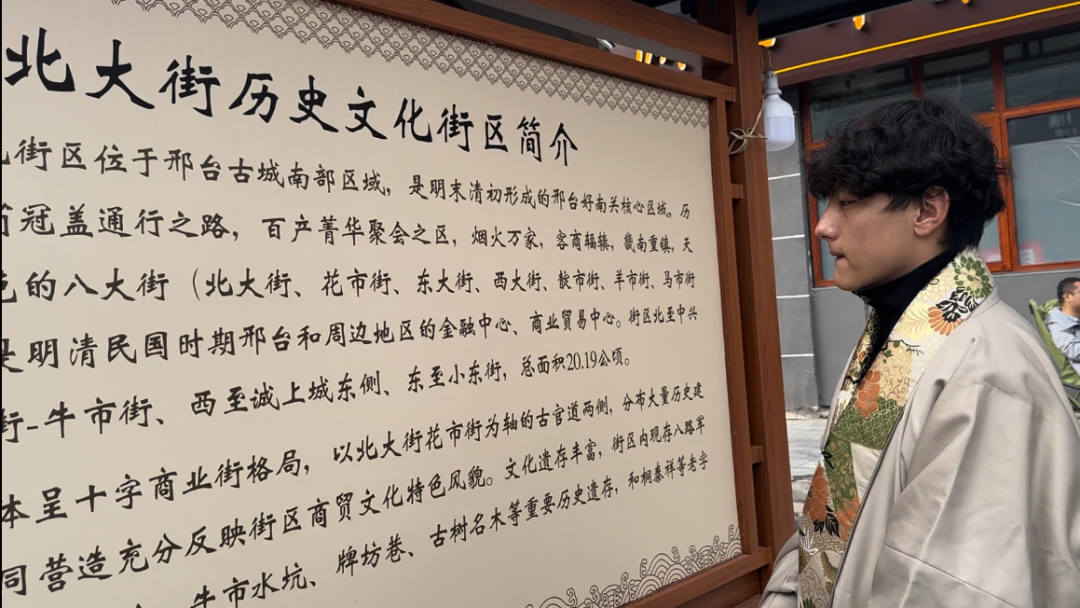 北大街历史文化街区简介
街区位于邢台古城南部区域，是明末清初形成的邢台好南关核心区域。历
冠盖通行之路，百产菁华聚会之区，烟火万家，客商辐辏，畿南重镇，天
色的八大街（北大街、花市街、东大街、西大街、靛市街、羊市街、马市街
是明清民国时期邢台和周边地区的金融中心、商业贸易中心。街区北至中兴
街-牛市街、西至诚上城东侧、东至小东街，总面积20.19公顷。
本呈十字商业街格局，以北大街花市街为轴的古官道两侧，分布大量历史建
同营造充分反映街区商贸文化特色风貌。文化遗存丰富，街区内现存八路军
牛市水坑、牌坊巷、古树名木等重要历史遗存，和桐泰祥等老字